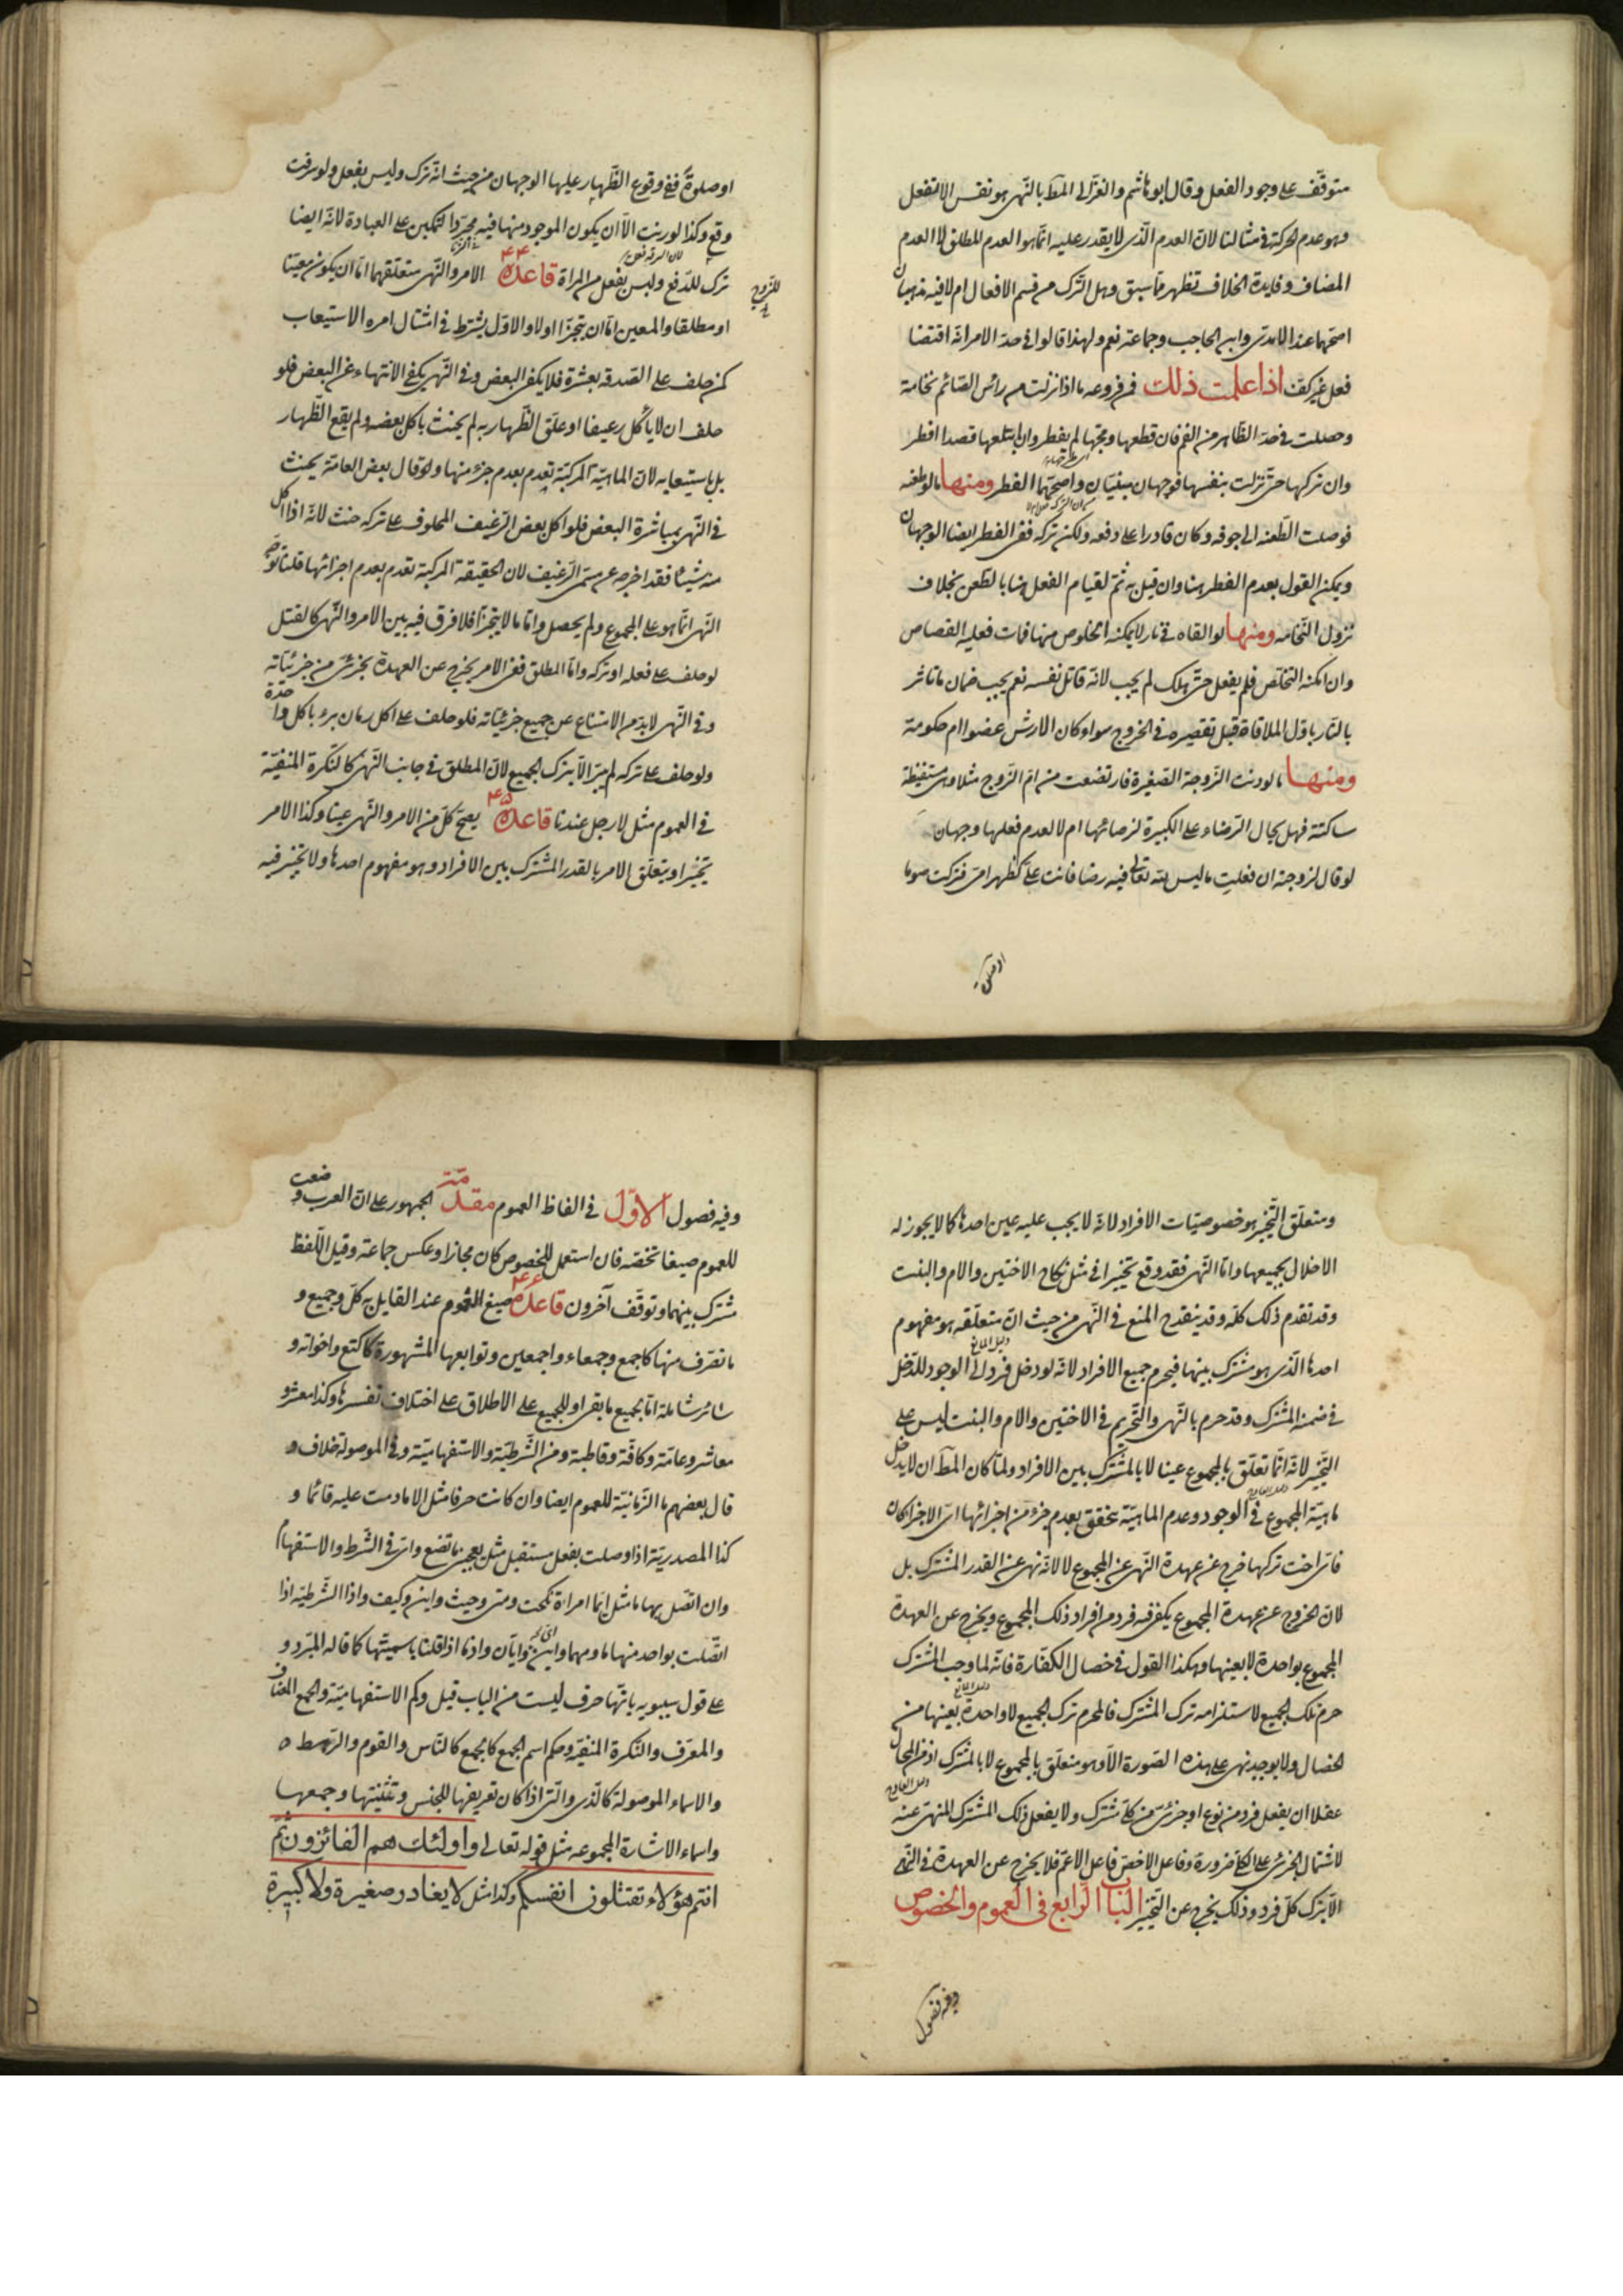 متوقّف على وجود الفعل وقال ابوهاشم والغزالى المط بالنّهى هو نفس الا تفعل
وهو عدم الحركة فى مثالنا لانّ العدم الّذى لا يقدر عليه انّما هو العدم المطلق لا العدم
المضاف وفايدة الخلاف تظهر ممّا سبق وهل التّرك من قسم الافعال ام لا فيه مذهبان
اصحّهما عند الامدى وابن الحاجب وجماعة نعم ولهذا قالوا فى حدّ الامر انّه اقتضا
فعل غير كفّ اذا علمت ذلك فمن فروعه ما اذا نزلت من رأس الصّائم نخامة
وحصلت فى حدّ الظّاهر من الفم فان قطعها ومجّها لم يفطر وان ابتلعها قصدا افطر
وان تركها حتّى نزلت بنفسها فوجهان مبنيّان واصحّهما الفطر ومنها ما لو طعنه
فوصلت الطّعنه الى جوفه وكان قادرا على دفعه ولكن تركه ففى الفطر ايضا الوجهان
ويمكن القول بعدم الفطر هنا وان قيل به ثمّ لقيام الفعل هنا بالطّعن بخلاف
نزول النّخامه ومنها لو القاه فى نار لا يمكنه الخلوص منها فمات فعليه القصاص
وان امكنه التخلّص فلم يفعل حتّى هلك لم يجب لانّه قاتل نفسه نعم يجب ضمان ما تاثر
بالنّار باوّل الملاقاة قبل تقصيره فى الخروج سواء كان الارش عضوا ام حكومة
ومنها ما لو دنت الزّوجة الصّغيرة فارتضعت من امّ الزّوج مثلا وهى مستيقظة
ساكتة فهل يحال الرّضاء على الكبيرة لرضائها ام لا لعدم فعلها وجهان
لو قال لزوجته ان فعلت ما ليس لله تعالى فيه رضا فانت علىّ كظهر امى فتركت صوما
او صلوة
او صلوة ففى وقوع الظّهار عليها الوجهان من حيث انّه ترك وليس بفعل ولو سرقت
وقع وكذا لو زنت الّا ان يكون الموجود منها فيه مجرّد التمكين على العبادة لانّه ايضا
ترك للدّفع وليس بفعل من المراة قاعدة ۴۴ الامر والنّهى متعلّقهما امّا ان يكون معيّنا
للزّوج
او مطلقا والمعين امّا ان يتجزّا اولا والاوّل يشترط فى امتثال امره الاستيعاب
كمن حلف على الصّدقه بعشرة فلا يكفى البعض وفى النّهى يكفى الانتهاء عن البعض فلو
حلف ان لا ياكل رغيفا او علّق الظّهار به لم يحنث باكل بعضه ولم يقع الظّهار
بل باستيعابه لانّ الماهيّة المركبّة تعدم بعدم جزء منها وقال بعض العامّة يحنث
فى النّهى بمباشرة البعض فلو اكل بعض الرّغيف المحلوف على تركه حنث لانّه اذا اكل
منه شيئا فقد اخرجه عن مسمّى الرّغيف لان الحقيقة المركبة تعدم بعدم اجزائها قلنا توجّه
النّهى انّما هو على المجموع ولم يحصل وامّا ما لا يتجزّا فلا فرق فيه بين الامر والنّهى كالقتل
لو حلف على فعله او تركه وامّا المطلق ففى الامر يخرج عن العهدة بجزئى من جزئيّاته
وفى النّهى لا بدّ من الامتناع عن جميع جزئيّاته فلو حلف على اكل رمان برء باكل واحدة
ولو حلف على تركه لم يبرّ الّا بترك الجميع لانّ المطلق فى جانب النّهى كالنّكرة المنفيّة
فى العموم مثل لا رجل عندنا قاعدة ۴۵ يصحّ كلّ من الامر والنّهى عينا وكذا الامر
تخييرا ويتعلّق الامر بالقدر المشترك بين الافراد وهو مفهوم احدها ولا تخيير فيه
ومتعلّق التّخيير هو خصوصيّات الافراد لانّه لا يجب عليه عين احدها كما لا يجوز له
الاخلال بجميعها وامّا النّهى فقد وقع تخييرا فى مثل نكاح الاختين والام والبنت
وقد تقدم ذلك كلّه وقد ينقدح المنع فى النّهى من حيث انّ متعلّقه هو مفهوم
احدها الّذى هو مشترك بينها فيحرم جميع الافراد لانّه لو دخل فرد الى الوجود لدخل
فى ضمنه المشترك وقد حرم بالنّهى والتّحريم فى الاختين والام والبنت ليس على
التّخيير لانّه انّما تعلّق بالمجموع عينا لا بالمشترك بين الافراد ولمّا كان المطّ ان لا يدخل
ماهيّة المجموع فى الوجود وعدم الماهيّة يتحقق بعدم جزء من اجزائها اىّ الاجزا كان
فاىّ اخت تركها خرج عن عهدة النّهى عن المجموع لا لانّه نهى عن القدر المشترك بل
لانّ الخروج عن عهدة المجموع يكفى فيه فرد من افراد ذلك المجموع ويخرج عن العهدة
المجموع بواحدة لا بعينها وهكذا القول فى خصال الكفّارة فانّه لما وجب المشترك
حرم ترك الجميع لاستلزامه ترك المشترك فالمحرم ترك الجميع لا واحدة بعينها من
الخصال ولا يوجد نهى على هذه الصّورة الّا وهو متعلّق بالمجموع لا بالمشترك اذ من المحال
عقلا ان يفعل فرد من نوع او جزئى من كلّى مشترك ولا يفعل ذلك المشترك المنهىّ عنه
لاشتمال الجزئى على الكلّى ضرورة وفاعل الاخصّ فاعل الاعمّ فلا يخرج عن العهدة فى النّهى
الّا بترك كلّ فرد وذلك يخرج عن التّخيير الباب الرّابع فى العموم والخصوص
وفيه فصول
وفيه فصول الاوّل فى الفاظ العموم مقدّمة الجمهور على انّ العرب وضعت
للعموم صيغا تخصّه فان استعمل للخصوص كان مجازا وعكس جماعة وقيل اللّفظ
مشترك بينهما وتوقّف آخرون قاعدة ۴۶ صيغ العموم عند القايل به كلّ وجميع و
ما تصّرف منها كاجمع وجمعاء واجمعين وتوابعها المشهورة كاكتع واخواته و
سائر شاملة امّا لجميع ما بقى او للجميع على الاطلاق على اختلاف تفسيرها وكذا معشر و
معاشر وعامّة وكافّة وقاطبة ومن الشّرطيّة والاستفهاميّة وفى الموصولة خلاف و
قال بعضهم ما الزّمانيّة للعموم ايضا وان كانت حرفا مثل الا ما دمت عليه قائما و
كذا المصدريّة اذا وصلت بفعل مستقبل مثل يعجبنى ما تصنع واىّ فى الشّرط والاستفهام
وان اتّصل بها ما مثل ايّما امراة نكحت ومتى وحيث واين وكيف واذا الشّرطيّة اذا
اتّصلت بواحد منها ما ومهما واين وايّان واذما اذا قلنا باسميّتها كما قاله المبّرد و
على قول سيبويه بانّها حرف ليست من الباب قيل وكم الاستفهاميّة والجمع المضاف
والمعرّف والنّكرة المنفيّه وحكم اسم الجمع كالجمع كالنّاس والقوم والرّهط
والاسماء الموصولة كالّذى والّتى اذا كان تعريفها للجنس وتثنيتها وجمعها
واسماء الاشارة المجموعه مثل قوله تعالى واولئك هم الفائزون ثم
انتم هؤلاء تقتلون انفسكم وكذا مثل لا يغادر صغيرة ولا كبيرة